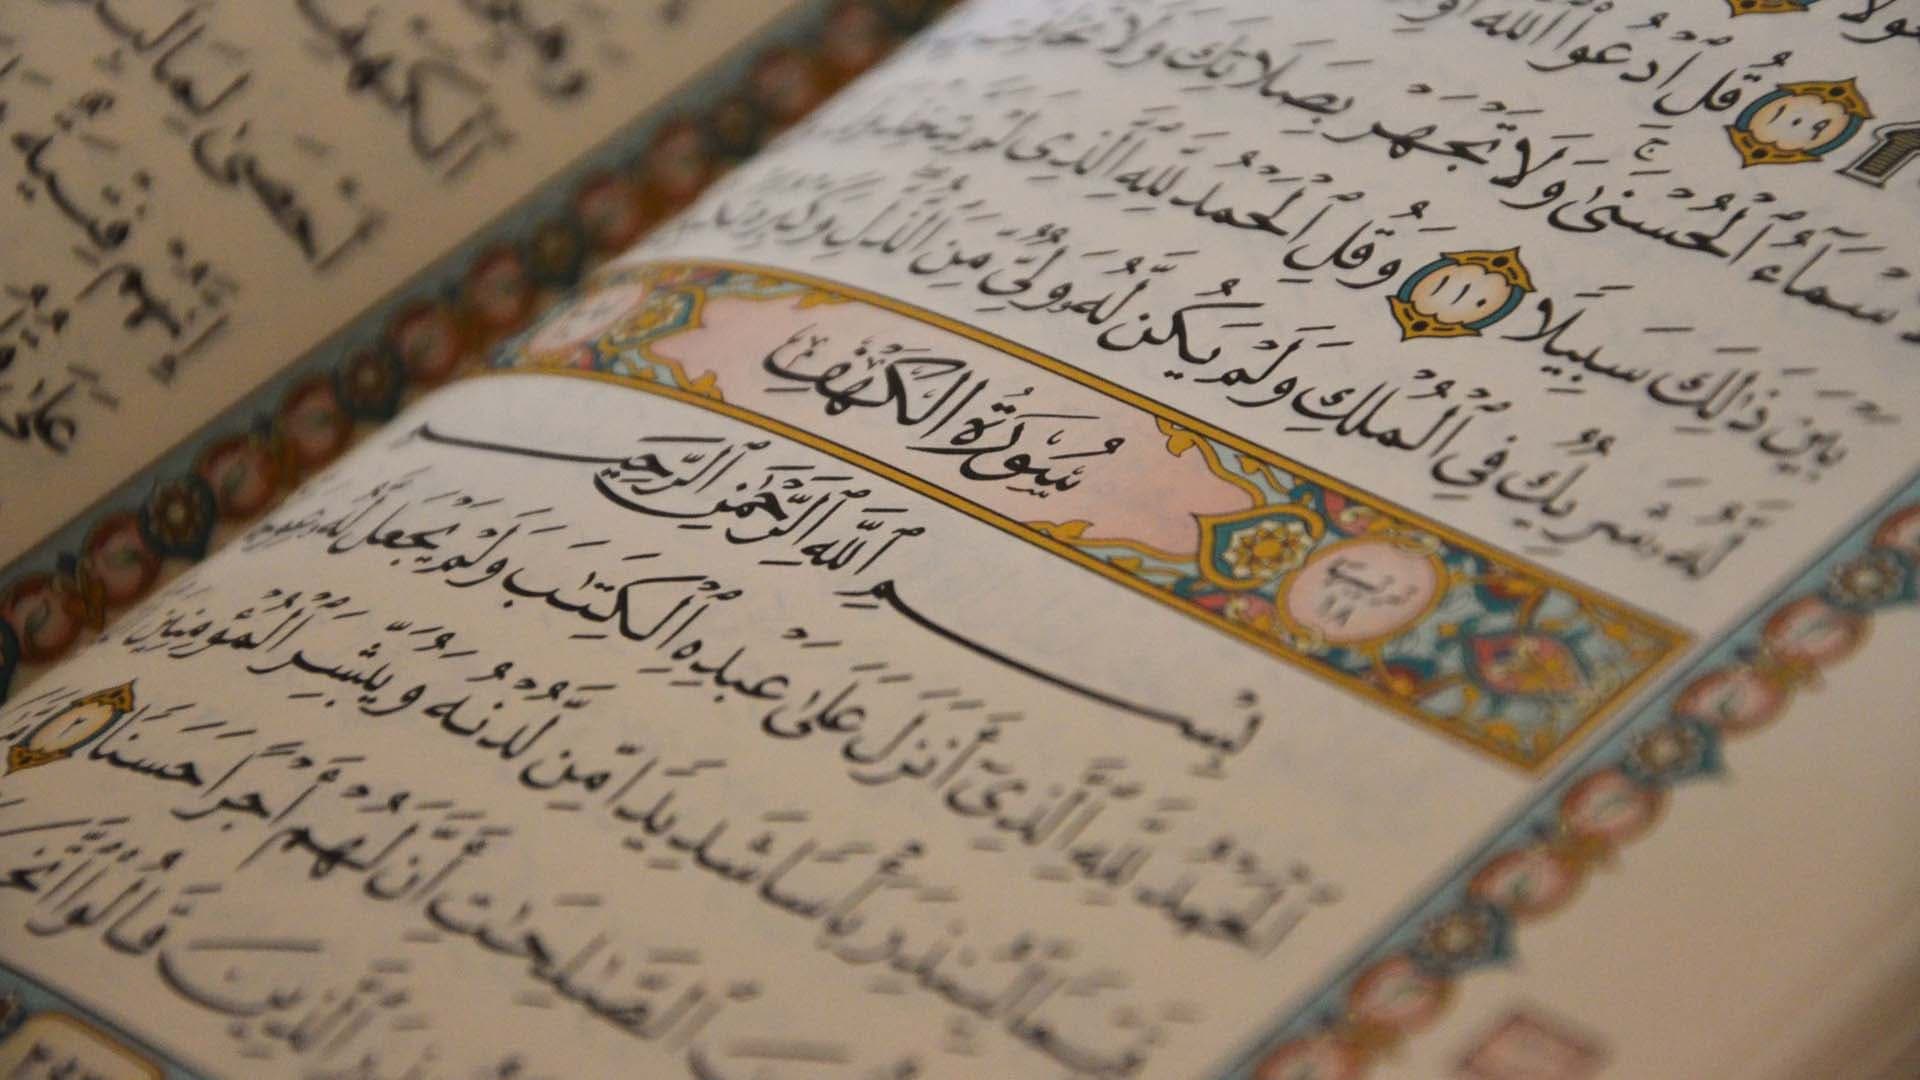 قُلِ ٱدْعُوا۟ ٱللَّهَ
١٠٩
ٱلْأَسْمَآءُ ٱلْحُسْنَىٰ ۚ وَلَا تَجْهَرْ بِصَلَاتِكَ وَلَا تُخَافِتْ
بَيْنَ ذَٰلِكَ سَبِيلًا ١١٠ وَقُلِ ٱلْحَمْدُ لِلَّهِ ٱلَّذِى لَمْ يَتَّخِذْ
لَّهُۥ شَرِيكٌ فِى ٱلْمُلْكِ وَلَمْ يَكُن لَّهُۥ وَلِىٌّ مِّنَ ٱلذُّلِّ وَكَبِّرْهُ
ترتيبها ١٨
سُورَةُ الكَهْفِ
بِسْمِ ٱللَّهِ ٱلرَّحْمَٰنِ ٱلرَّحِيمِ
ٱلْحَمْدُ لِلَّهِ ٱلَّذِىٓ أَنزَلَ عَلَىٰ عَبْدِهِ ٱلْكِتَٰبَ وَلَمْ يَجْعَل لَّهُۥ
قَيِّمًا لِّيُنذِرَ بَأْسًا شَدِيدًا مِّن لَّدُنْهُ وَيُبَشِّرَ ٱلْمُؤْمِنِينَ
ٱلصَّٰلِحَٰتِ أَنَّ لَهُمْ أَجْرًا حَسَنًا ٢
ٱلَّذِينَ قَالُوا۟ ٱتَّخَذَ
ٱلْكَهْفِ
أَحْصَىٰ لِمَا لَبِثُوٓا۟
فِتْيَةٌ
عَلَىٰ